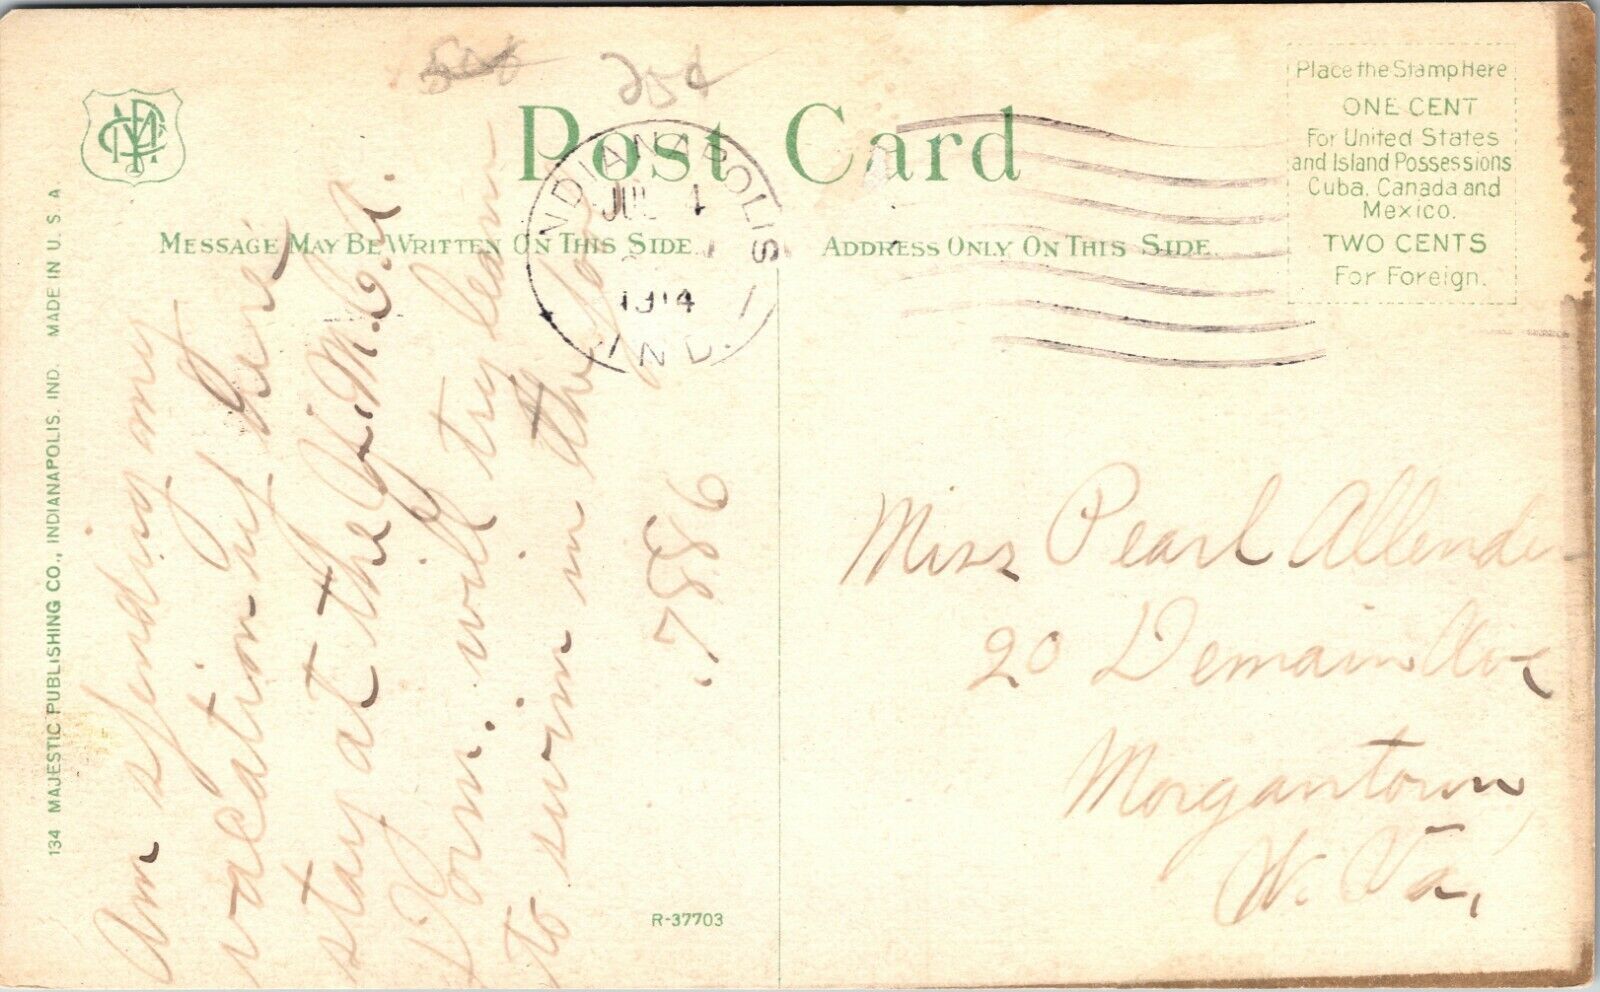 50¢ 20¢
Post Card
Place the Stamp Here
ONE CENT
For United States
and Island Possessions
Cuba, Canada and
Mexico.
TWO CENTS
For Foreign.
INDIANAPOLIS
JUL 4
1914
IND.
MESSAGE MAY BE WRITTEN ON THIS SIDE
ADDRESS ONLY ON THIS SIDE.
134 MAJESTIC PUBLISHING CO., INDIANAPOLIS, IND. MADE IN U. S. A.
Am spending my
vacation here
stay at the Y.M.C.A.
Dorm. will try learn
to swim in the
Miss Pearl Allender
20 Demain Ave
Morgantown,
W. Va,
R-37703